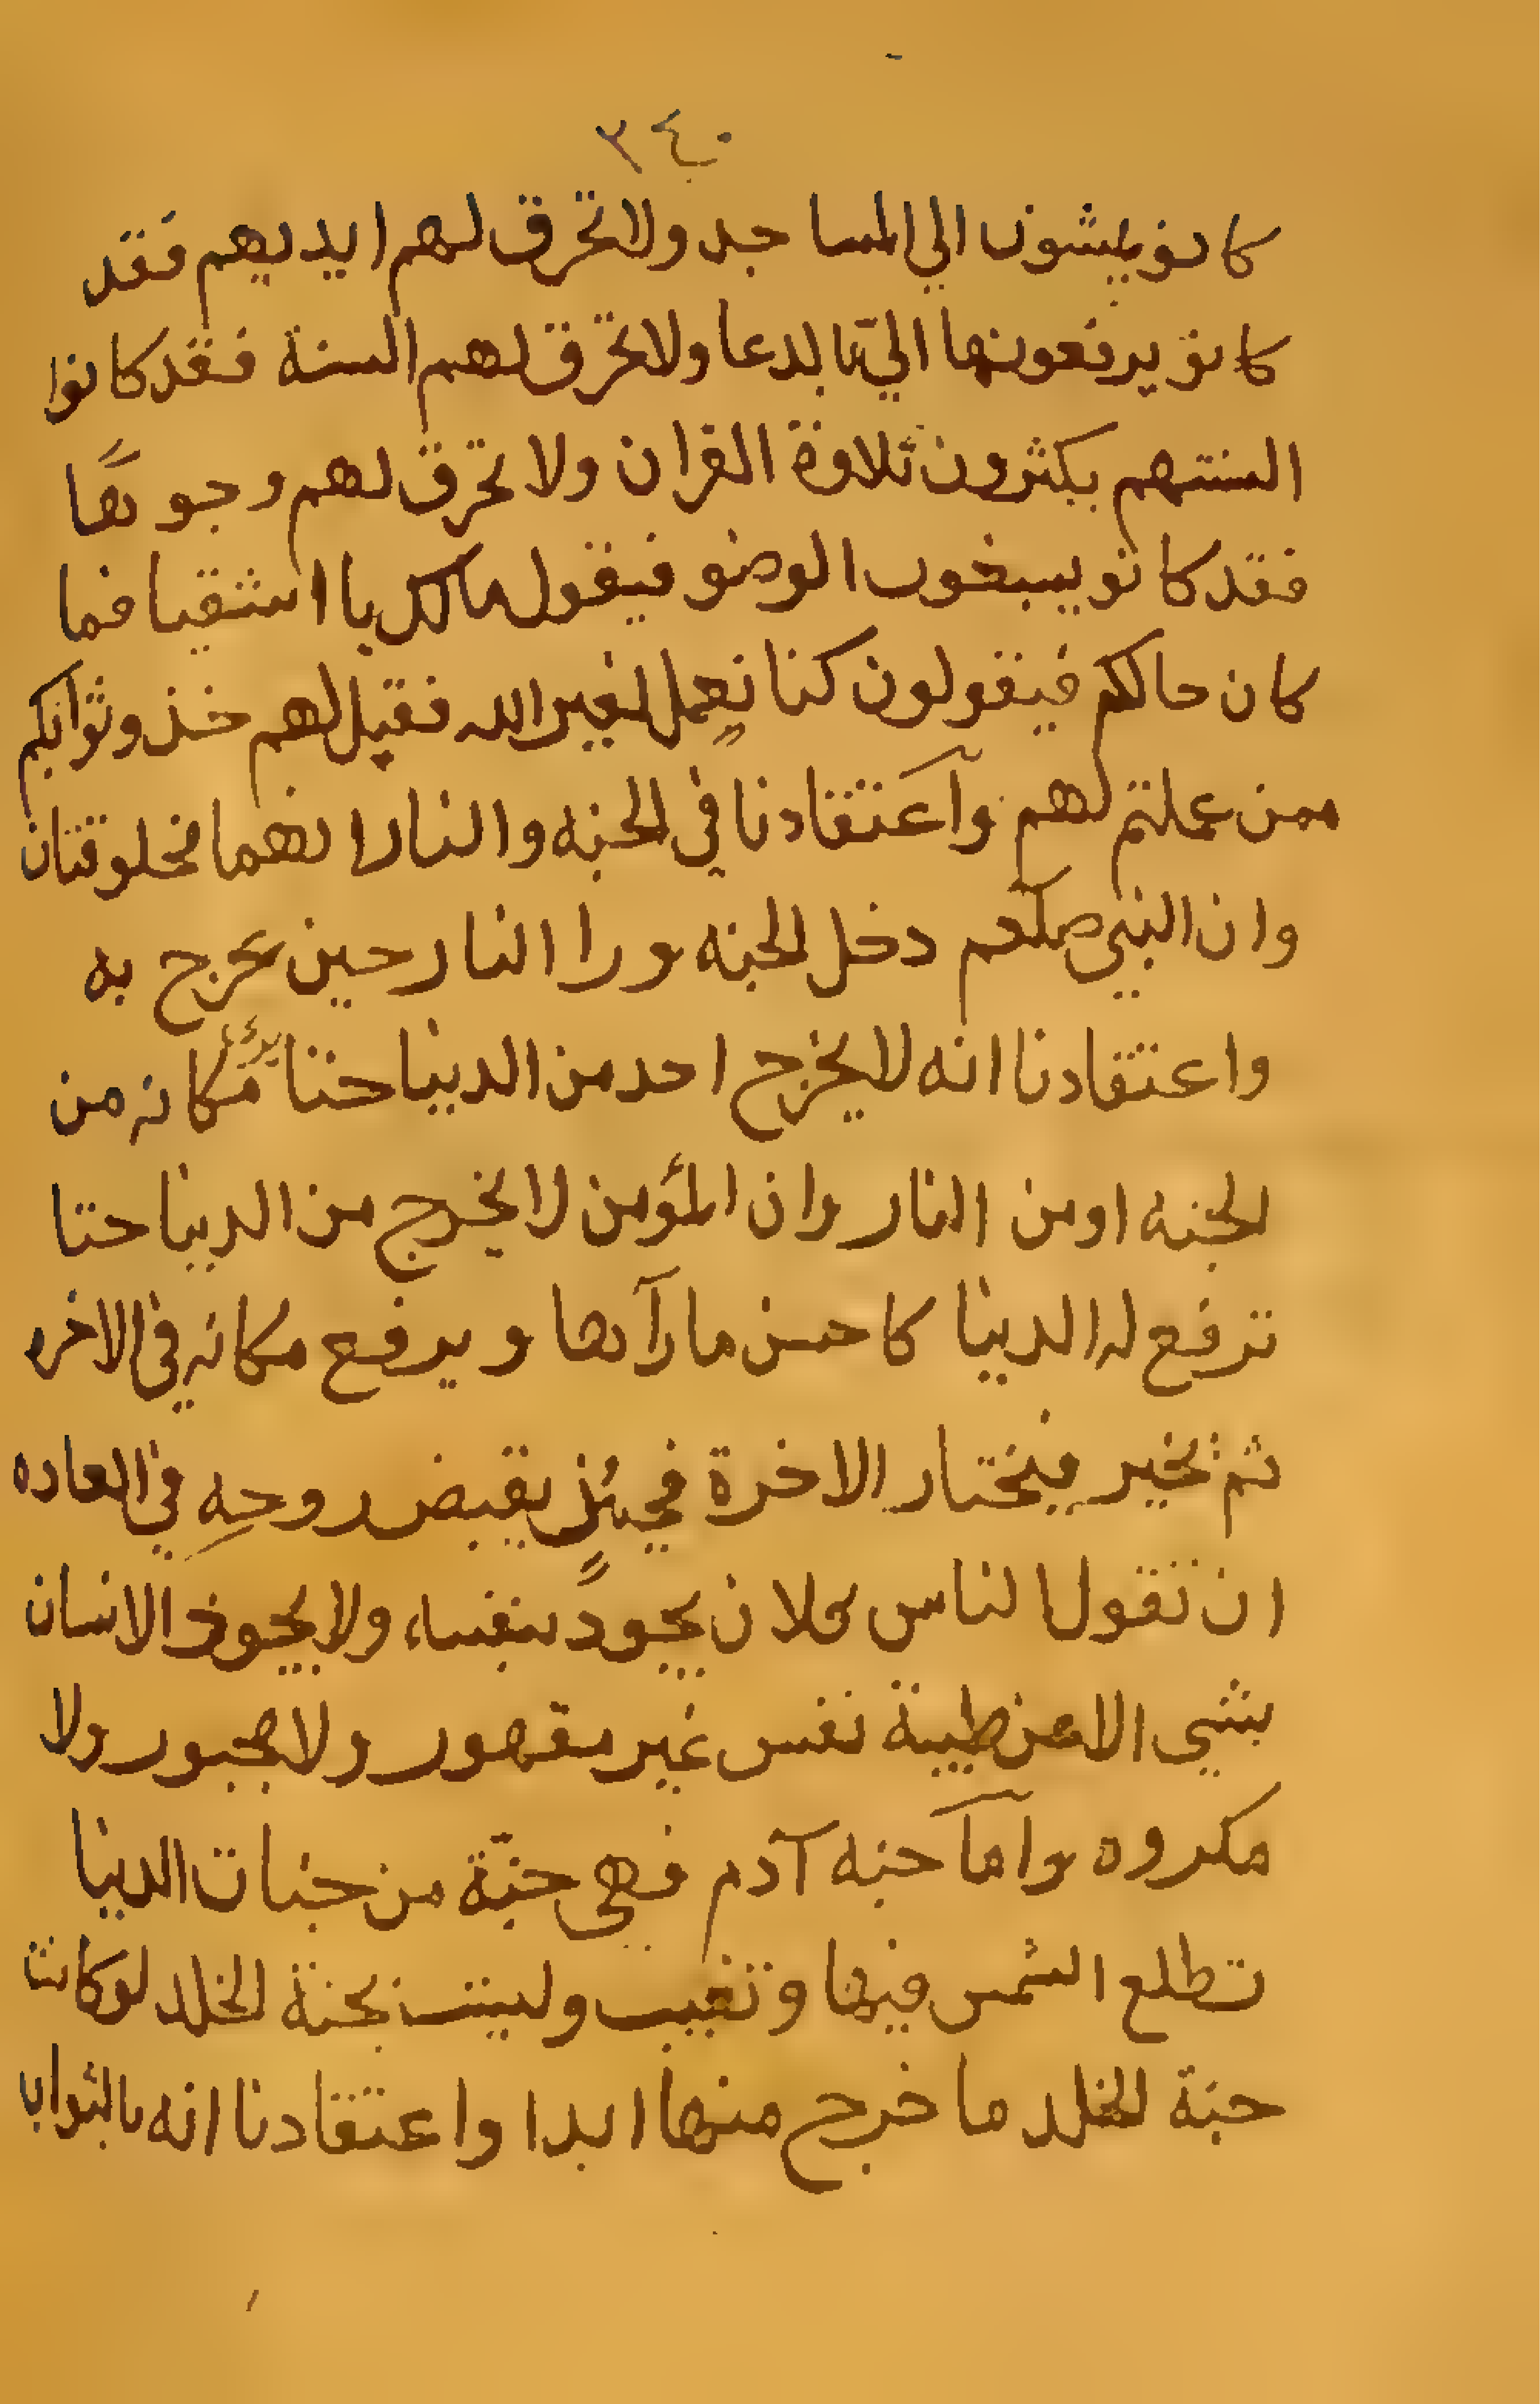 ٣٤٠
كانو يمشون الي المساجد ولا تحرق لهم ايديهم فقد
كانو يرفعونها اليّ بالدعا ولا تحرق لهم السنة فقد كانوا
السنتهم يكثرون تلاوة القران ولا تحرق لهم وجوهًا
فقد كانو يسبغون الوضو فيقول مالك يا اشقيا فما
كان حالكم فيقولون كنا نعمل لغير الله فقيل لهم خذو ثوابكم
ممن عملتم لهم وآعتقادنا في الجنه والنار انهما مخلوقتان
وان النبي صلعم دخل الجنه وراا النار حين عرج به
واعتقادنا انه لا يخرج احد من الدينا حتا يرئ مكانه من
الجنه او من النار وان المؤمن لا يخرج من الدينا حتا
ترفع له الدينا كاحسن ما رآها ويرفع مكانه في الاخره
ثم يخير فيختار الاخرة فحيئذٍ يقبض روحه في العاده
ان تقول الناس فلان يجودُ بنفسه ولا يجود الانسان
بشي الا عن طيبة نفس غير مقهور ولا مجبور ولا
مكروه وآما جنه آدم فهي جنّة من جنات الدينا
تطلع الشمس فيها وتغيب وليست بجنة الخلد لو كانت
جنة الخلد ما خرج منها ابدا واعتقادنا انه بالثواب